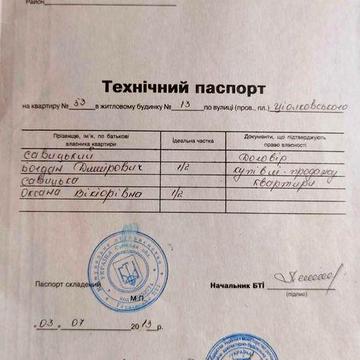 Район
Технічний паспорт
на квартиру № 33 в житловому будинку № 13 по вулиці (пров., пл.) Ціолковського
Прізвище, ім'я, по батькові власника квартири Ідеальна частка Документи, що підтверджують право власності
Савицький Договір
Богдан Дмитрович 1/2 купівлі-продажу
Савицька квартири
Оксана Вікторівна 1/2
Паспорт складений М.П. Начальник БТІ
(підпис)
"03" 07 2013 р.